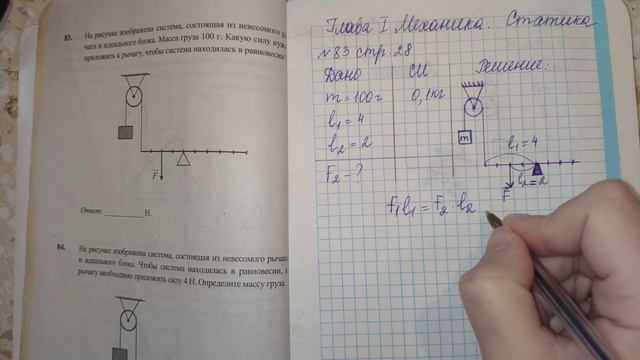 83. На рисунке изображена система, состоящая из невесомого
чага и идеального блока. Масса груза 100 г. Какую силу
приложить к рычагу, чтобы система находилась в равновесии
F
Ответ: ________ Н.
84. На рисунке изображена система, состоящая из невесомого
и идеального блока. Чтобы система находилась в равновесии,
рычагу необходимо приложить силу 4 Н. Определите массу груза.
Глава I Механика. Статика
№83 стр 28
Дано СИ Решение.
m=100г 0,1кг
l₁=4
l₂=2
F₂-?
m
l₁=4
l₂=2
F
F₁l₁=F₂·l₂